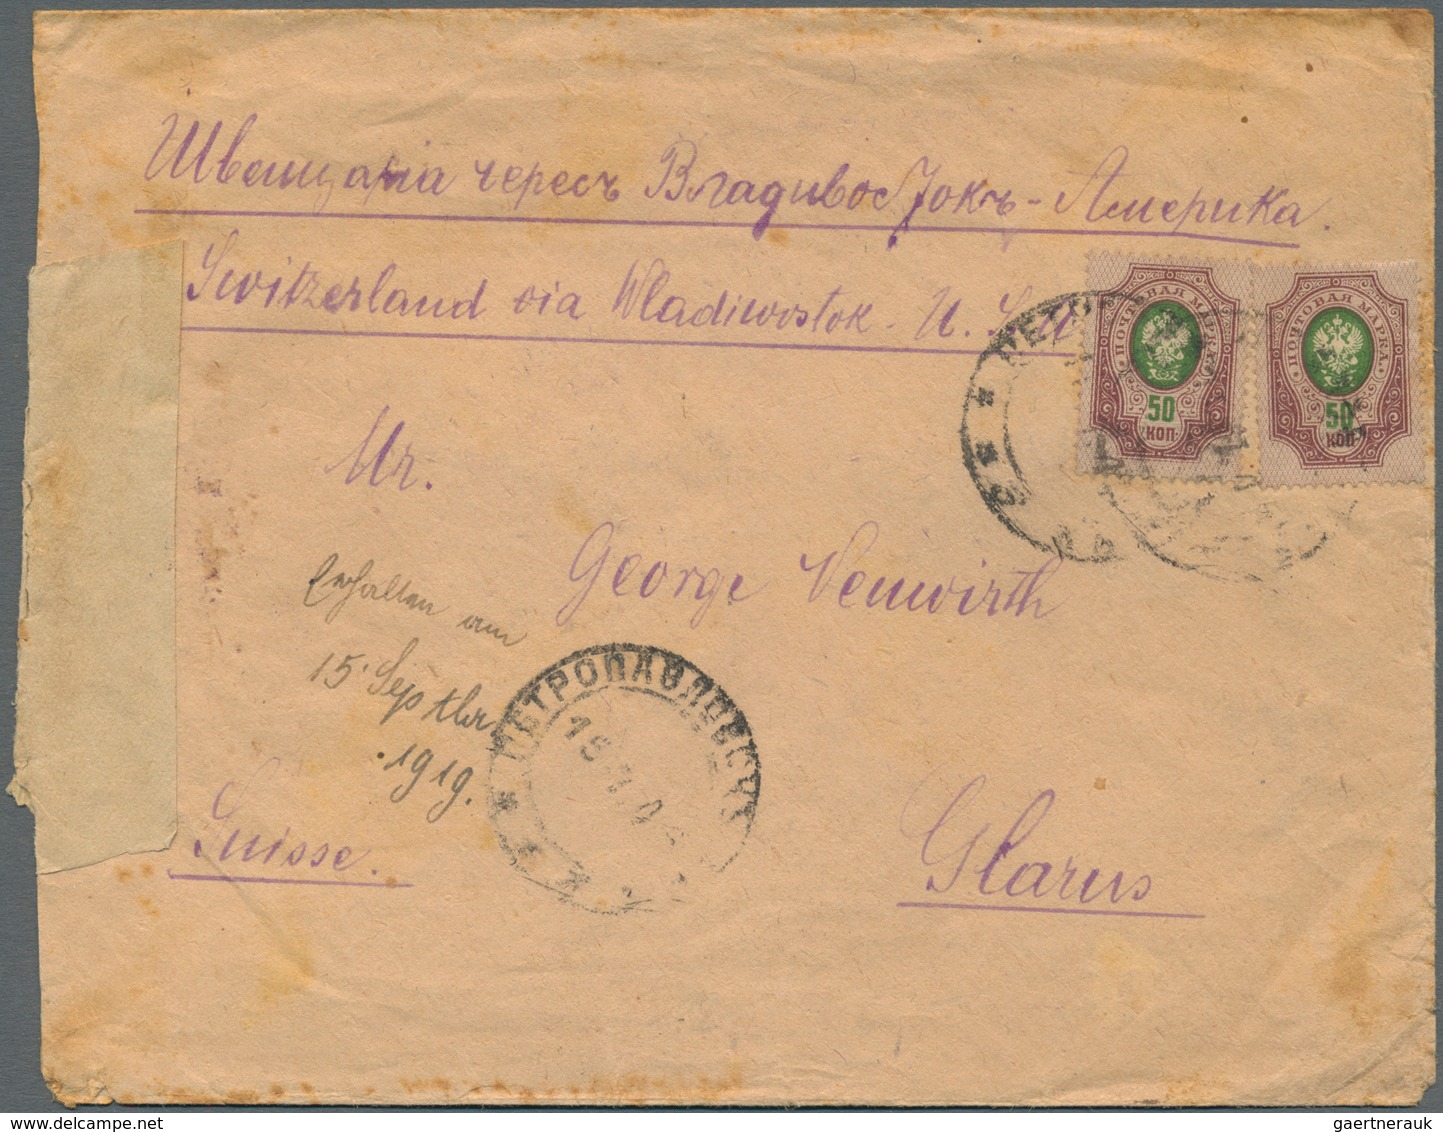 Швейцарія чересъ Владивостокъ - Америка.
Switzerland via Wladiwostok - U. S.
ПОЧТОВАЯ МАРКА
50
КОП
ПОЧТОВАЯ МАРКА
50
КОП
Mr.
George Neuwirth
Erhalten am
15. Septbr
1919.
ПЕТРОПАВЛОВСК
Suisse.
Glarus
gaertnerauk @ delcampe.net